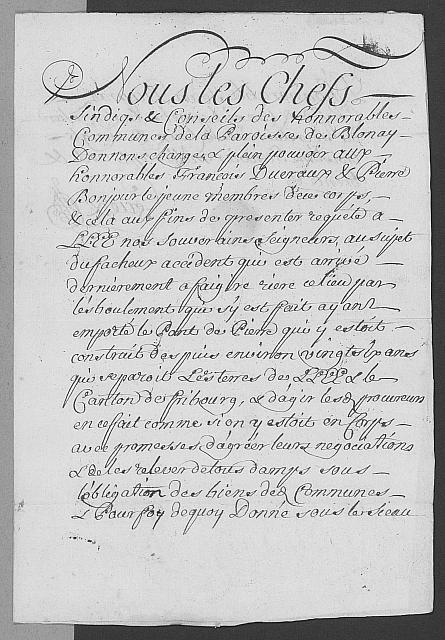 Nous les Chefs
Sindiqs & Conseils des Honnorables
Communes de la Paroisses de Blonay
Donnons charge & plein pouvoir aux
honnorables François Dueraux & Pierre
Bonjour le jeune membres d'ece corps,
& cela aux fins de presenter requéte a
LLEE nos souverains Seigneurs, au sujet
du facheux accident qui est arrivé
dernièrement a faigire rière ce lieu par
léboulement qui s'y est fait ayant
emporté le Pont de Pierre qui y estoit
construit des puis environ vingt six ans
qui separoit Les terres de LLEE & le
Canton de fribourg, & d'agir les d procureurs
en ce fait comme si en y estoit en Corps
avec promesses, d'agréer leurs negociations
& de les relever de touts damps sous
l'obligation des biens des Communes
& Pour foy de quoy Donné sous le sceau